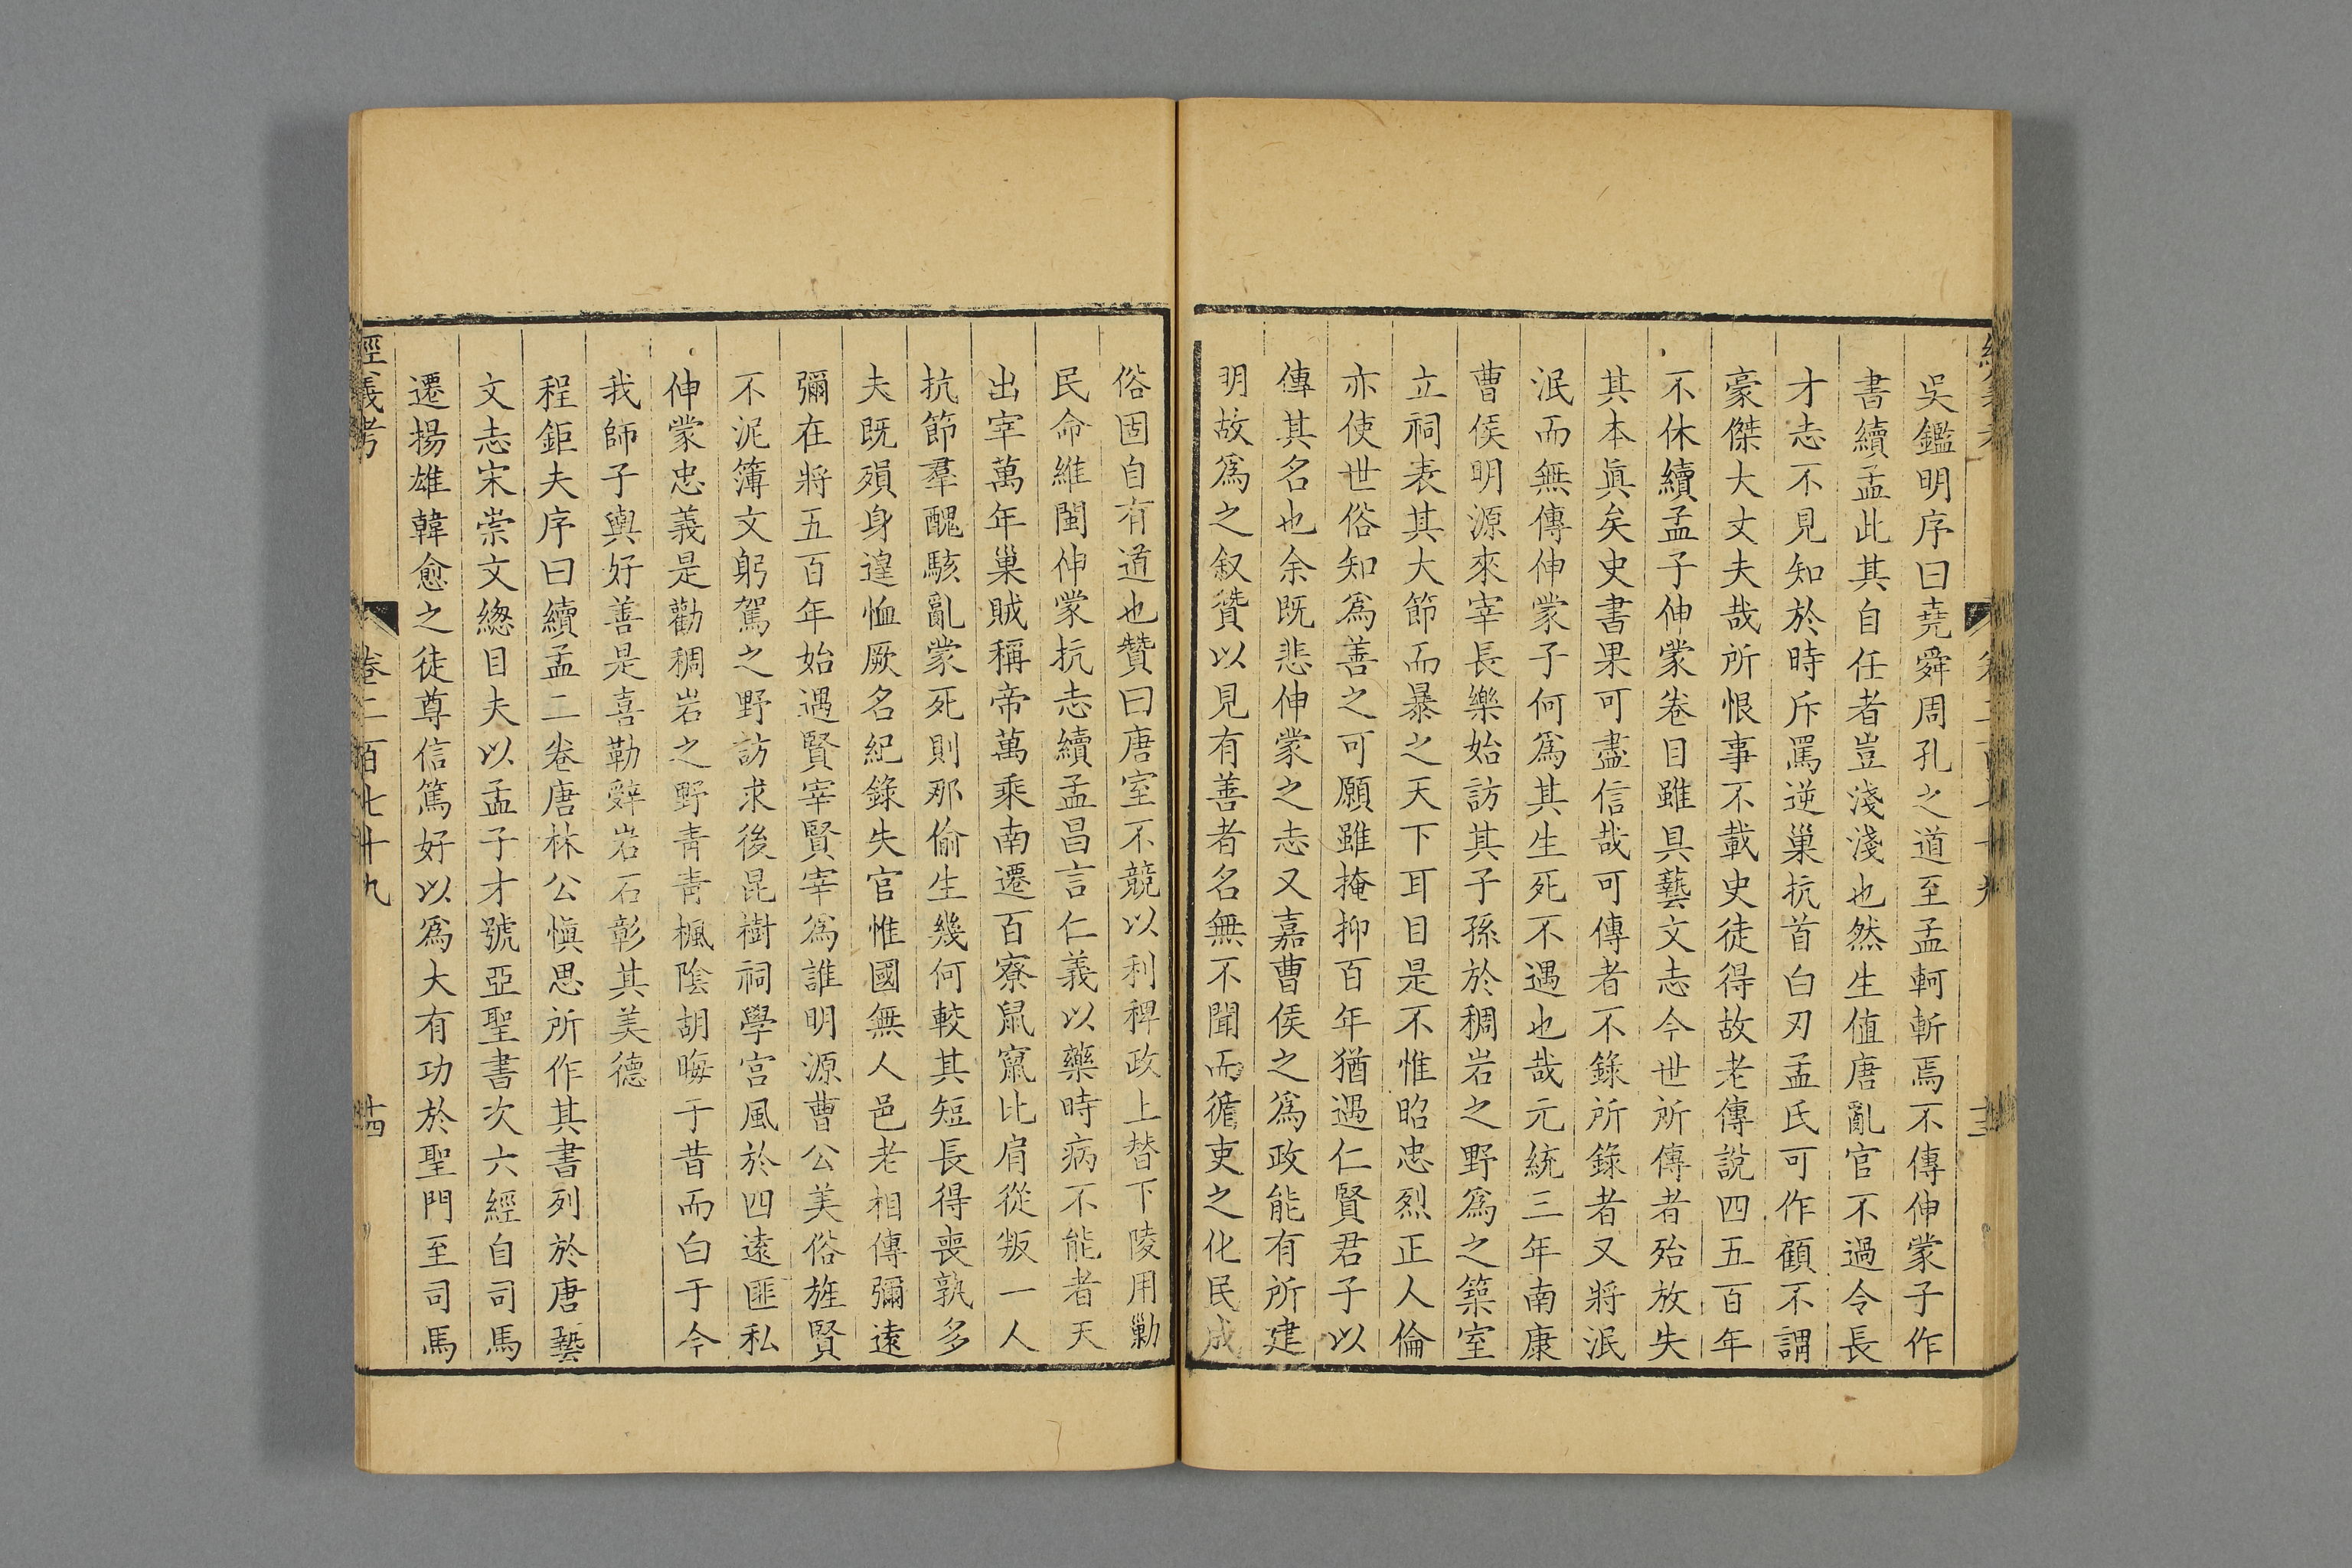 吳鑑明序曰堯舜周孔之道至孟軻斬焉不傳伸蒙子作
書續孟此其自任者豈淺淺也然生值唐亂官不過令長
才志不見知於時斥罵逆巢抗首白刃孟氏可作顧不謂
豪傑大丈夫哉所恨事不載史徒得故老傳說四五百年
不休續孟子伸蒙卷目雖具藝文志今世所傳者殆放失
其本眞矣史書果可盡信哉可傳者不錄所錄者又將泯
泯而無傳伸蒙子何爲其生死不遇也哉元統三年南康
曹侯明源來宰長樂始訪其子孫於稠岩之野爲之築室
立祠表其大節而暴之天下耳目是不惟昭忠烈正人倫
亦使世俗知爲善之可願雖掩抑百年猶遇仁賢君子以
傳其名也余既悲伸蒙之志又嘉曹侯之爲政能有所建
明故爲之叙贊以見有善者名無不聞而循吏之化民成
俗固自有道也贊曰唐室不競以利稗政上替下陵用勦
民命維閩伸蒙抗志續孟昌言仁義以藥時病不能者天
出宰萬年巢賊稱帝萬乘南遷百寮鼠竄比肩從叛一人
抗節羣醜駭亂蒙死則那偷生幾何較其短長得喪孰多
夫既殞身遑恤厥名紀錄失官惟國無人邑老相傳彌遠
彌在將五百年始遇賢宰賢宰爲誰明源曹公美俗旌賢
不泥簿文躬駕之野訪求後昆樹祠學宮風於四遠匪私
伸蒙忠義是勸稠岩之野青青楓陰胡晦于昔而白于今
我師子輿好善是喜勒辭岩石彰其美德
程鉅夫序曰續孟二卷唐林公愼思所作其書列於唐藝
文志宋崇文緫目夫以孟子才號亞聖書次六經自司馬
遷揚雄韓愈之徒尊信篤好以爲大有功於聖門至司馬
經義考　卷二百七十九　十四